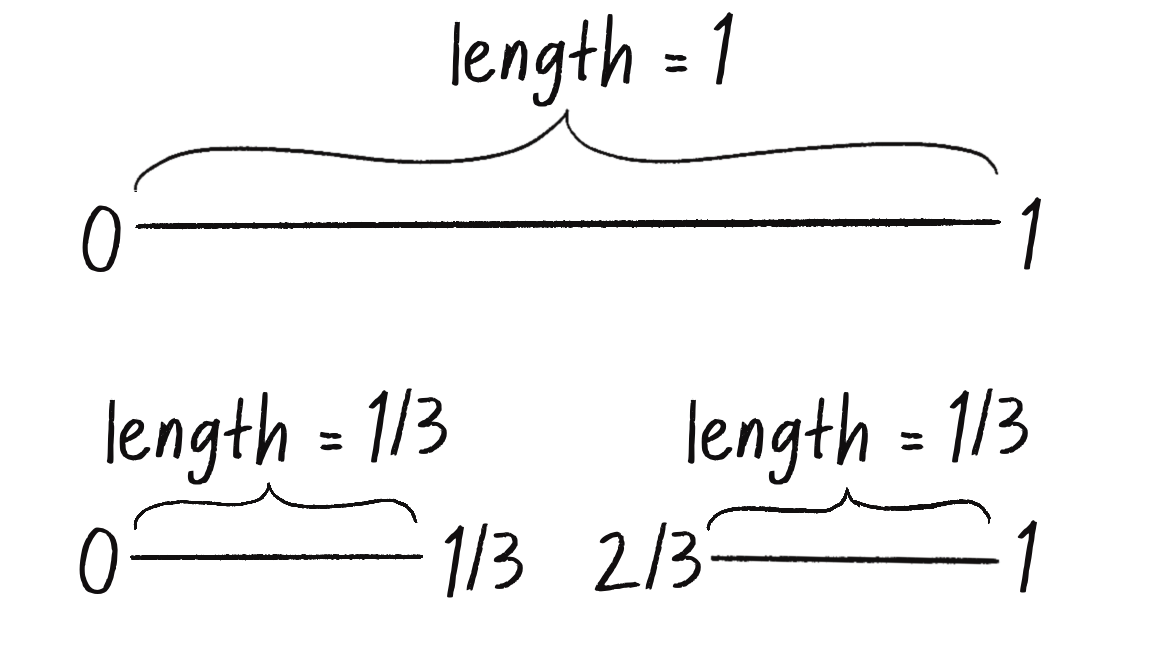 length = 1
0 1
length = 1/3 length = 1/3
0 1/3 2/3 1